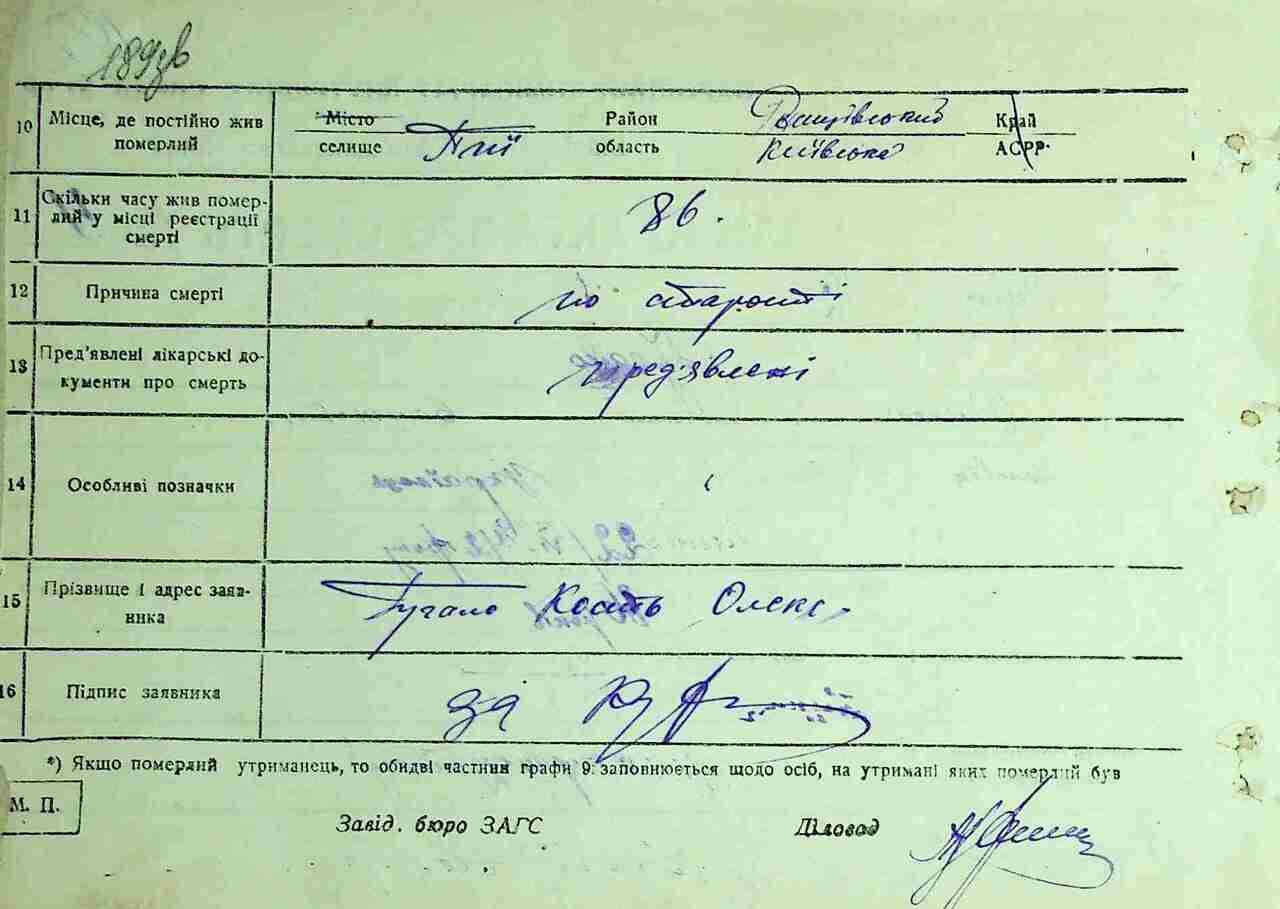 189зв
10 Місце, де постійно жив Місто Район Край
померлий селище Пії область Київська АСРР
11 Скільки часу жив помер- 86.
лий у місці реєстрації
смерті
12 Причина смерті по старості
13 Пред'явлені лікарські до- пред'явлені
кументи про смерть
14 Особливі позначки
15 Прізвище і адрес заяв- Кость Олекс.
ника
16 Підпис заявника за
*) Якщо померлий утриманець, то обидві частини графи 9 заповнюється щодо осіб, на утримані яких померлий був
М. П.
Завід. бюро ЗАГС Діловод